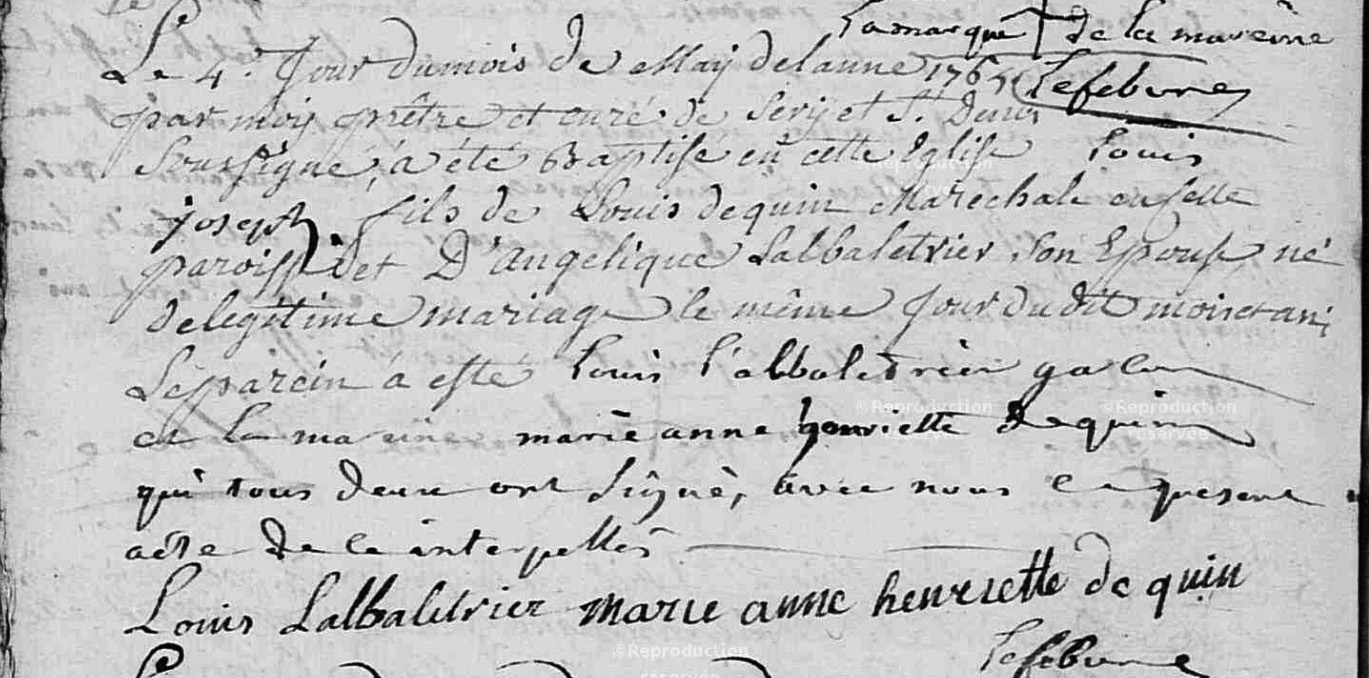 la marque † de la mareine
Le 4e Jour du mois de May de lanne 1765 Lefebvre
par moy prêtre et curé de Sery et St. Denis
Soussigné, a été Baptisé en cette Eglise Louis
joseph fils de Louis dequin Marechale en selle
paroisse et D'angelique Lalbaletrier Son Epouse, né
de legitime mariage le même Jour du dit mois et an;
Le parein a esté Louis l'albaletrier
et la mareine marie anne henriette dequin
qui tous deux ont signé, avec nous le present
acte de ce interpellés
Louis Lalbaletrier marie anne henriette de quin
Lefebvre
Le
©Reproduction
©Reproduction réservée
©Reproduction réservée
©Reproduction réservée